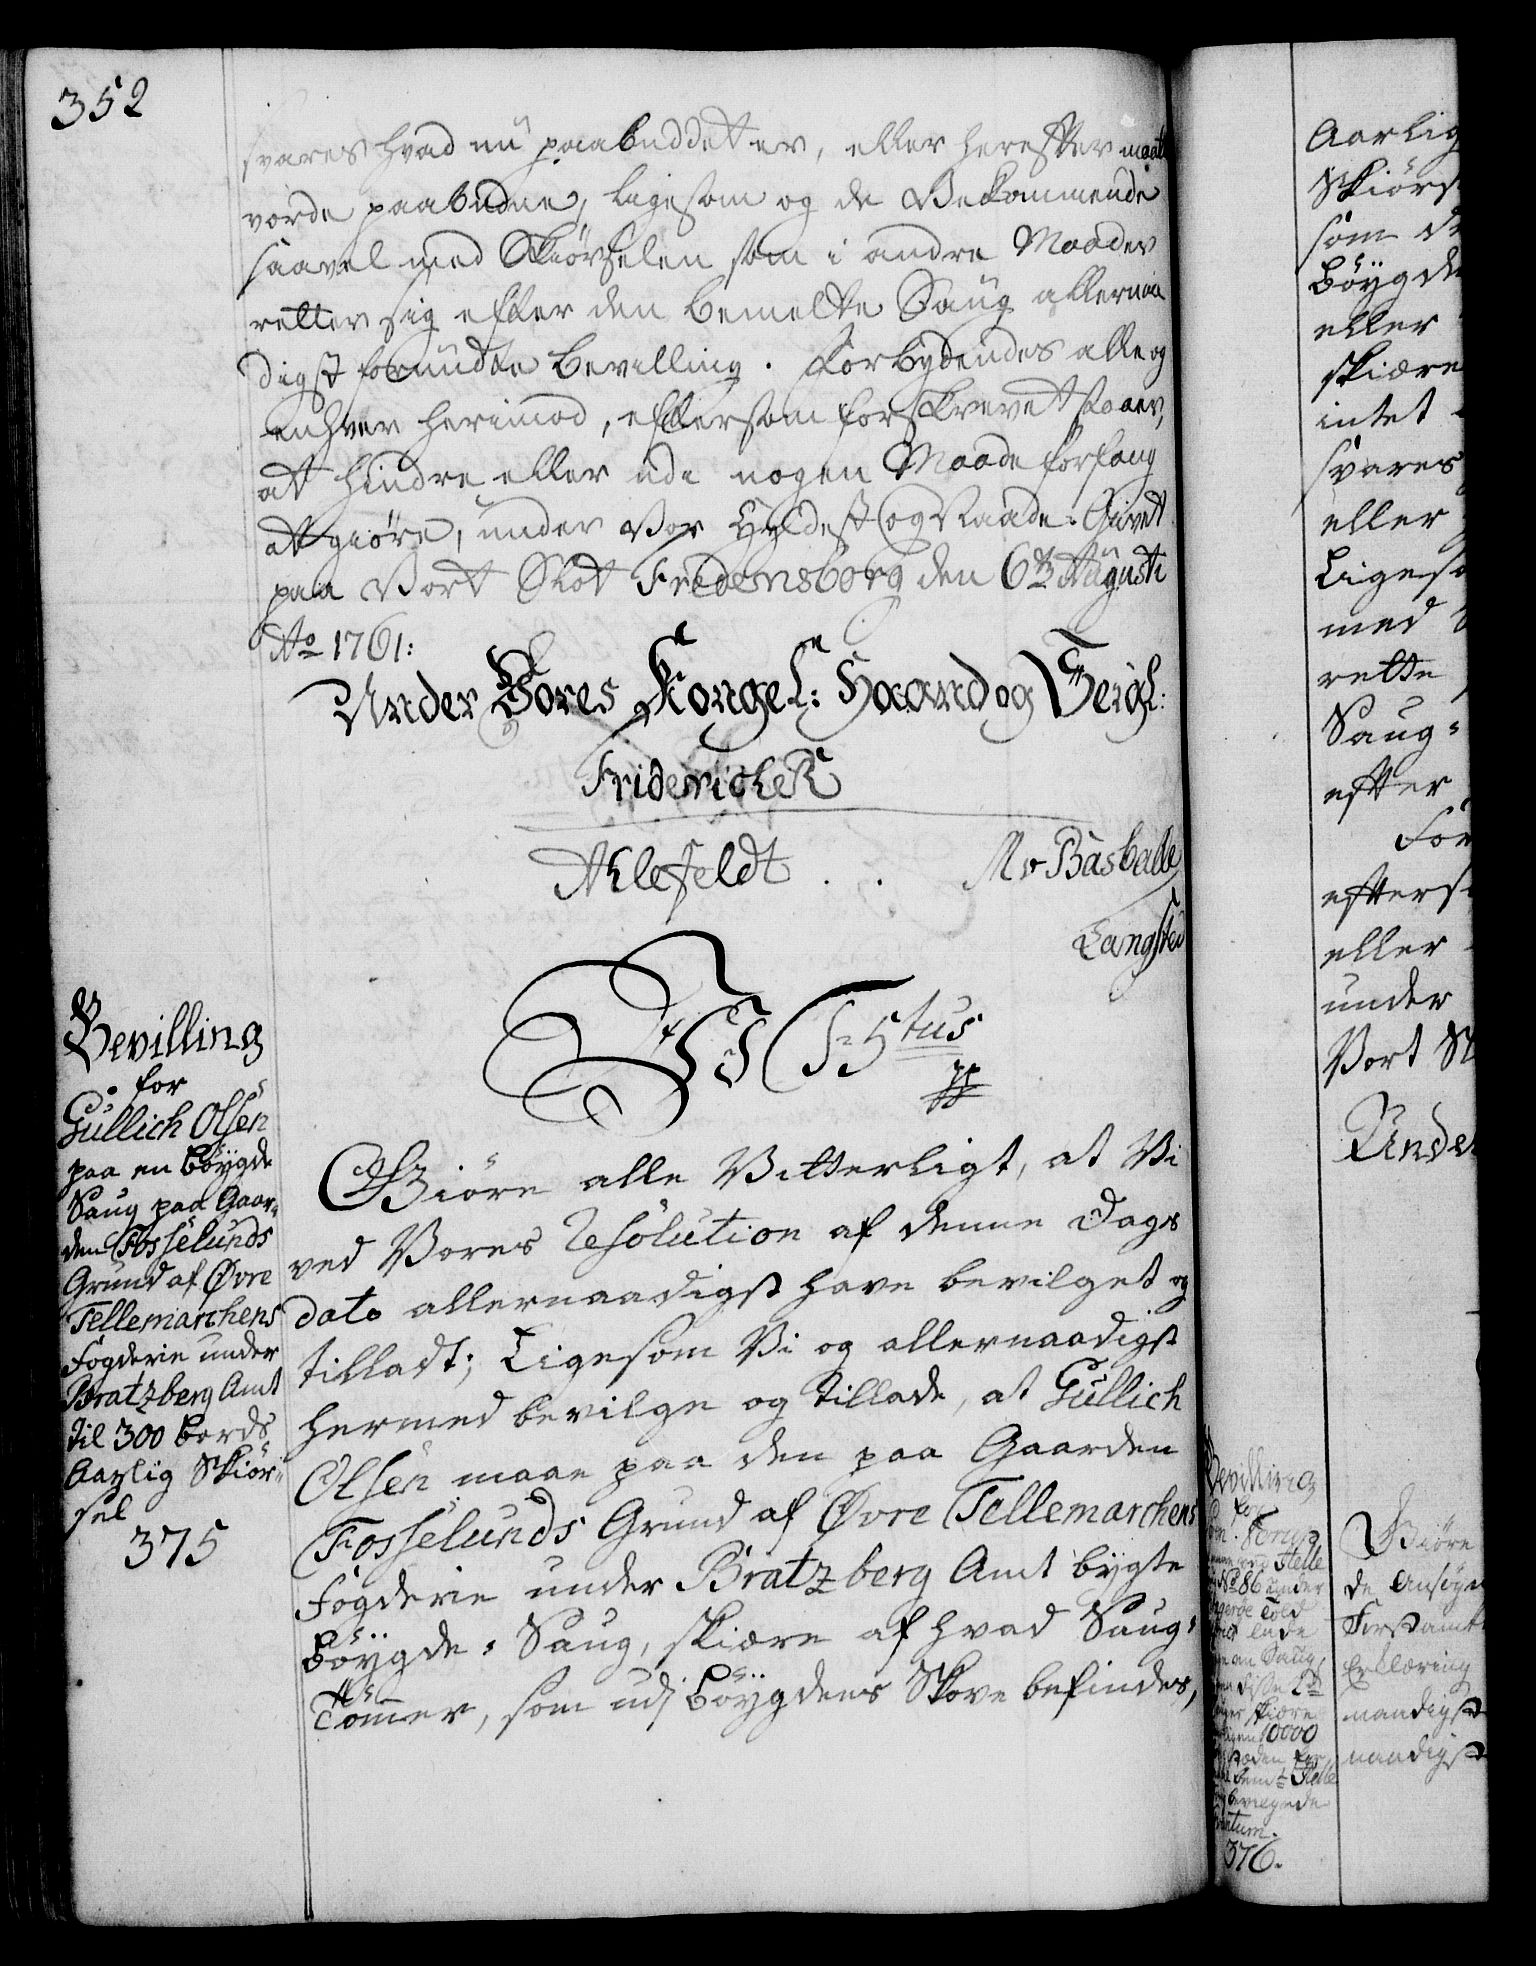 352
svares hvad nu paabuddet er, eller herefter maatte
vorde paabudne, ligesom og de Vedkommende
saavel med Skiørselen som i andre Maader
retter sig efter den bemelte Saug allernaa
digst forundte Bevilling. Forbydendes alle og
enhver herimod, eftersom forskrevet staaer,
at hindre eller udi nogen Maade forfang
at giøre, under Vor Hyldest og Naade. Givet
paa Vort Slot Fredensborg den 6te Augusti
Ao 1761:
Under Vores Kongel: Haand og Seigl:
Friderich R
Ahlefeldt . . M v Basballe
Langsted
Bevilling
for
Gullich Olsen
paa en Böygde
Saug paa Gaar-
den Fosselunds
Grund af Øvre
Tellemarchens
Fogderie under
Bratzberg Amt
til 300 Bords
Aarlig Skiør-
sel
375
Vi Fr 5tus
pp
Giøre alle Vitterligt, at Vi
ved Vores Resolution af denne Dags
Dato allernaadigst have bevilget og
tilladt; Ligesom Vi og allernaadigst
hermed bevilge og tillade, at Gullich
Olsen maae paa den paa Gaarden
Fosselunds Grund af Øvre Tellemarchens
Fogderie under Bratzberg Amt bygte
Böygde-Saug, skiære af hvad Saug-
Tömmer, som udj Böygdens Skove befindes,
Aarlig
Skiørs
som d
Böygde
eller
skiære
intet
svares
eller
Ligeso
med
rette
Saug-
efter
For
efters
eller
under
Vort Sl
Unde
Bevilling
for
Helle
No 86 under
en Saug,
disse 2de
skiære
10000
Stæden for
bemte Helle
bevilgede
376.
Giøre
de Ansøgn
Forstamt
Erklæring
naadigst
naadigst